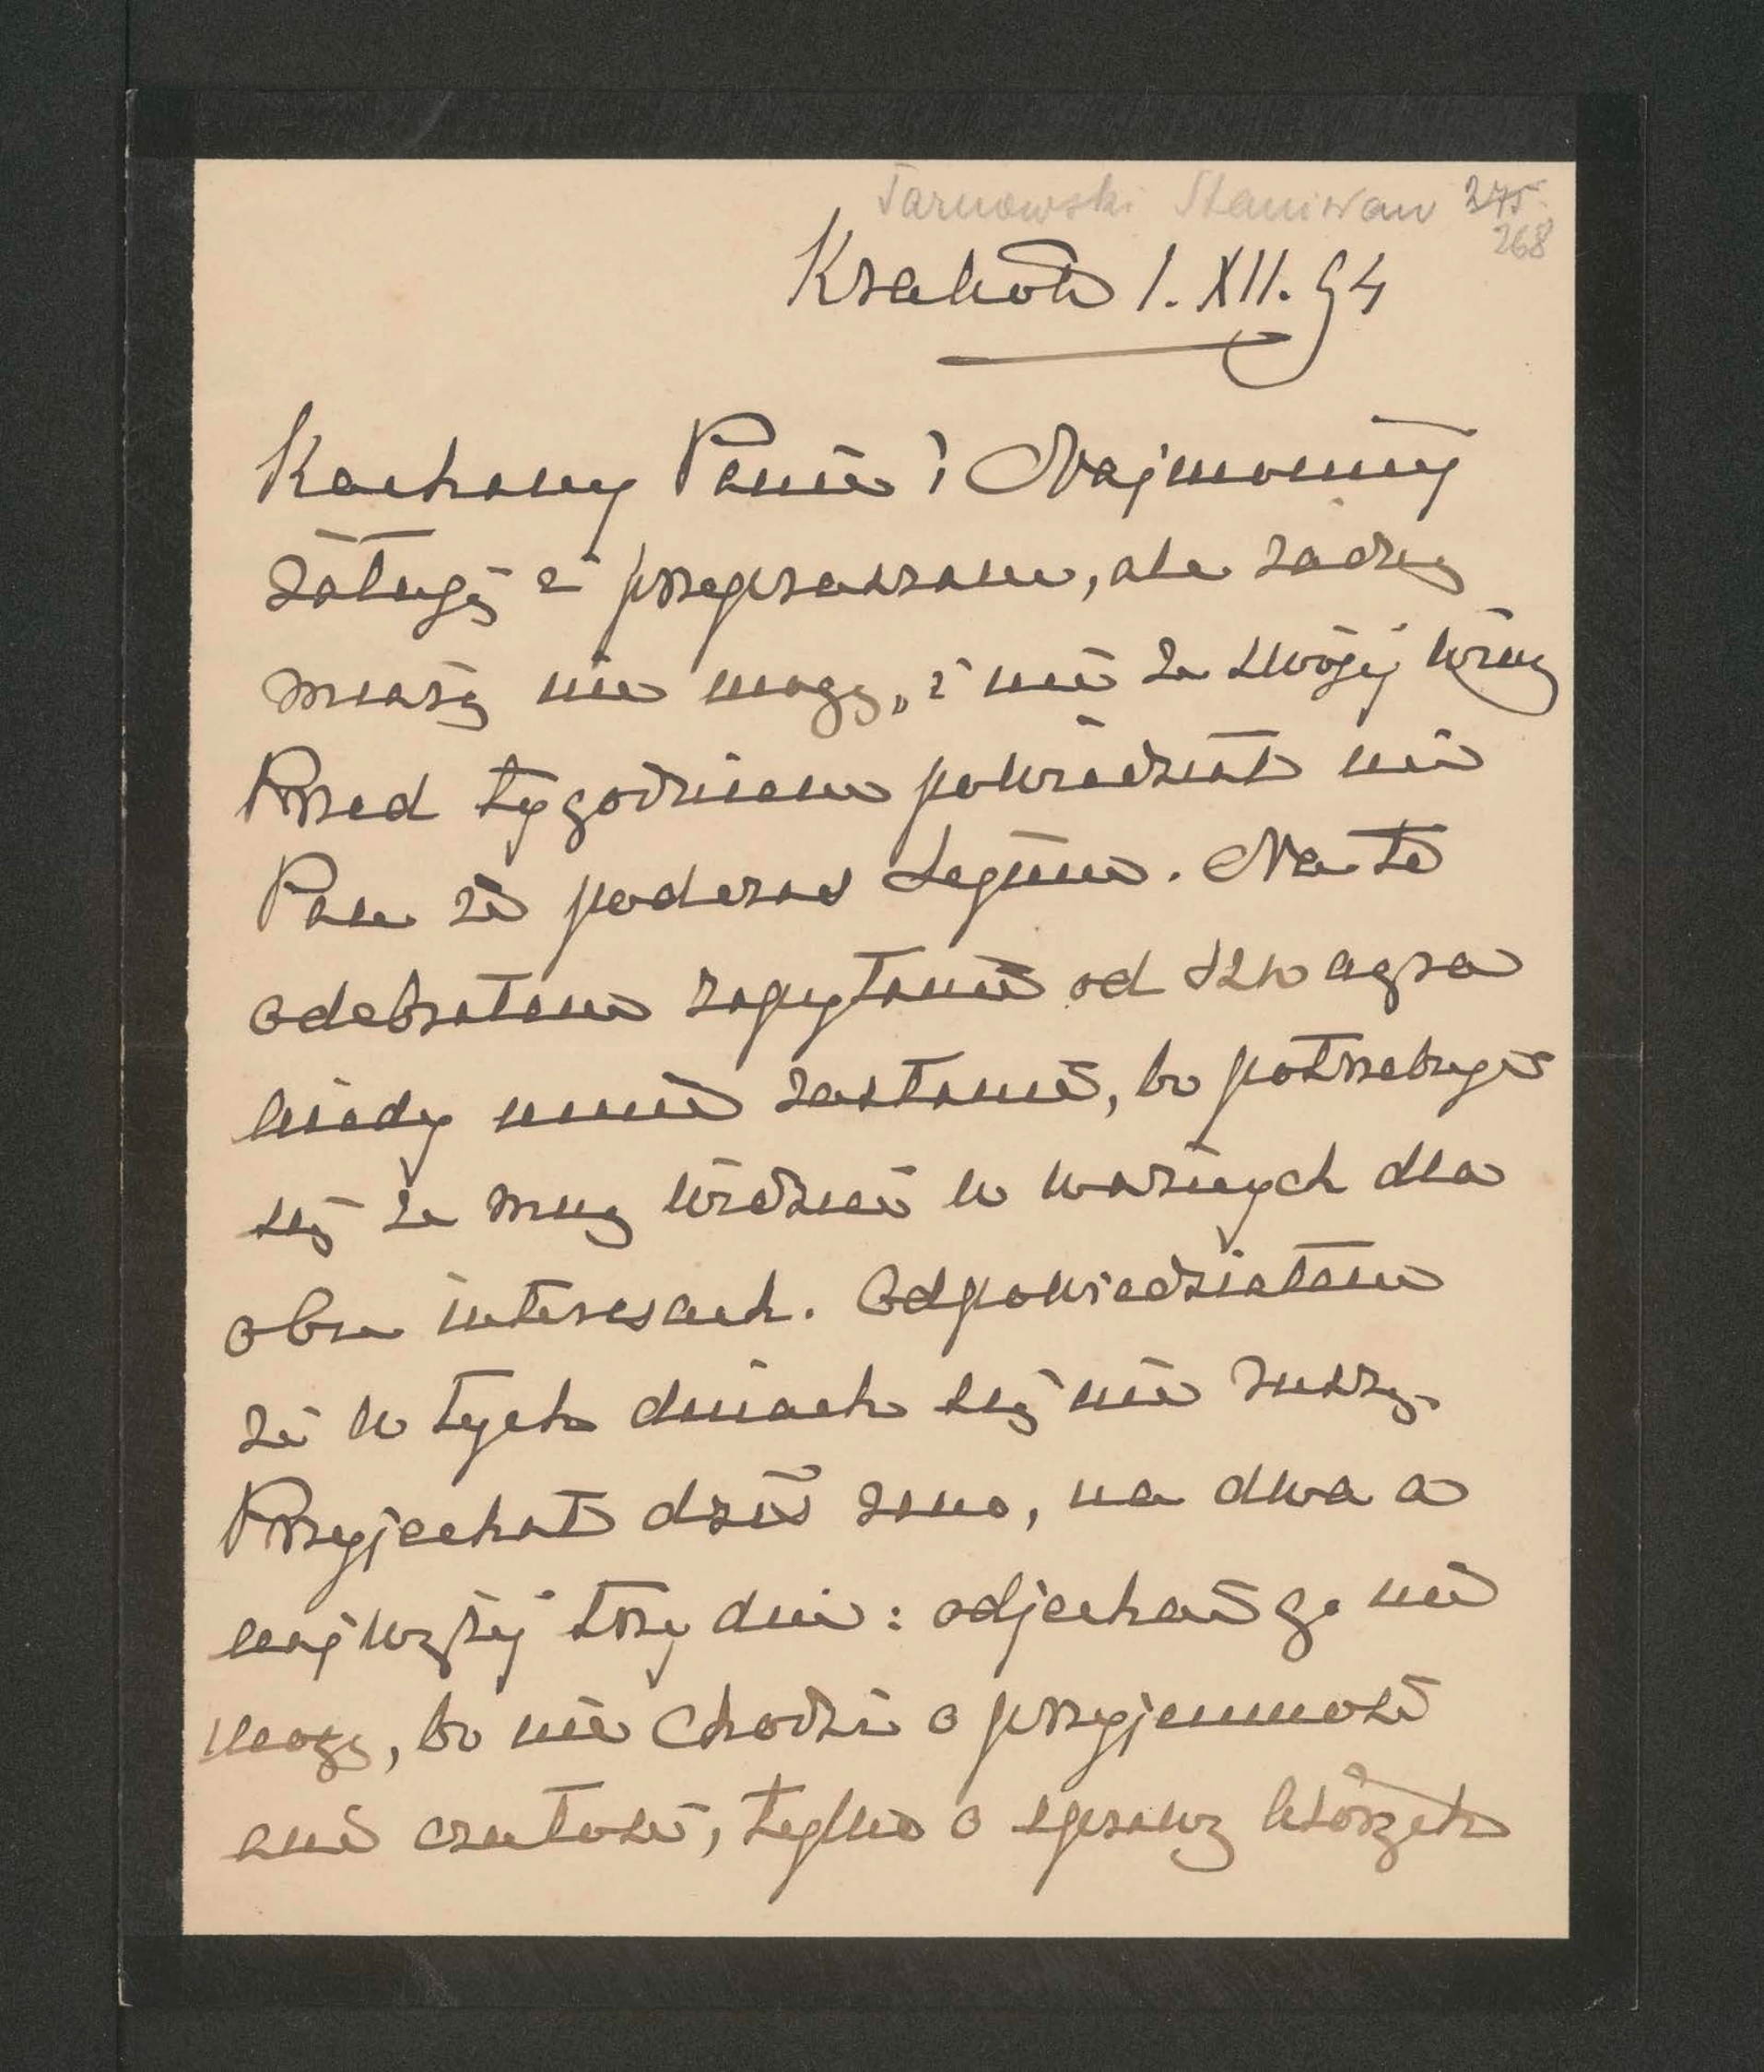 Tarnowski Stanisław 275.
268
Kraków 1. XII. 94
Kochany Panie! Najmocniéj
żałuję i przepraszam, ale
nie mogę, i nie ze swojéj winy
Przed tygodniem powiedział mi
Pan że podczas Sejmu. Na to
odebrałem zapytanie od szwagra
kiedy mnie zastanie, bo potrzebuje
się ze mną widzieć w ważnych dla
obu interesach. Odpowiedziałem
że w tych dniach się nie ruszę.
Przyjechał dziś rano, na dwa a
najwyżéj trzy dni: odjechać go nie
mogę, bo nie chodzi o przyjemność
ani czułość, tylko o sprawy których